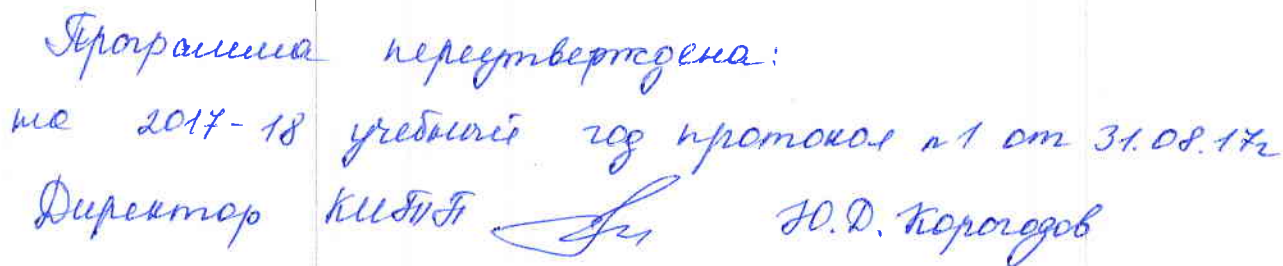 Программа переутверждена:
на 2017-18 учебный год протокол №1 от 31.08.17г
Директор КИБиП Ю.Д. Корогодов